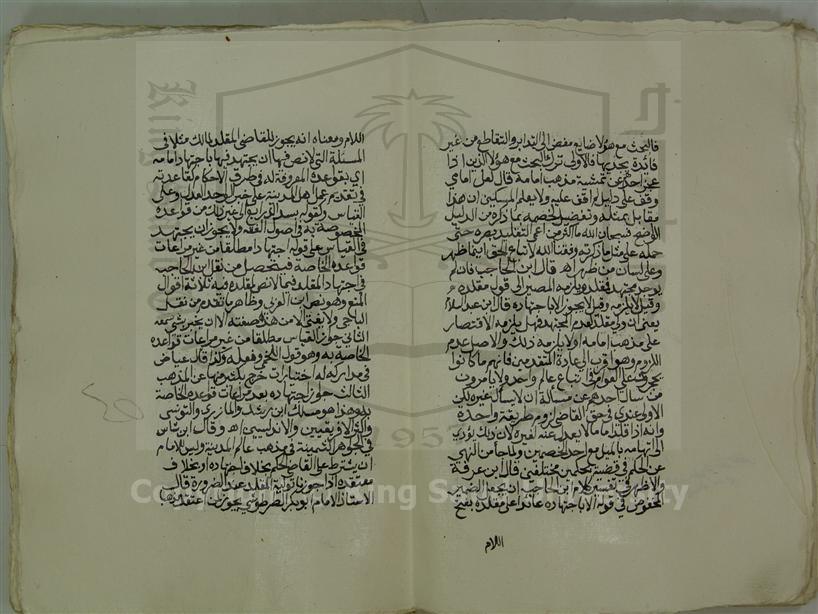 فالبحث مع هؤلا ضايع مفض الى التدابر والتقاطع من غير
فائدة يجديها فالاولى ترك البحث مع هؤلا الذين اذا
عجز احدهم عن تمشية مذهب امامه قال لعل امامي
وقف على دليل لم اقف عليه ولا يعلم المسكين ان هذا
مقابل بمثله وتفضيل لخصمه بما ذكره من الدليل
الواضح فسبحان الله ما اكثر من اعمى التقليد بصره حتى
حمله على مثل ما ذكرته وفقنا الله لاتباع الحق اينما ظهر
وعلى لسان من ظهر اهـ قال ابن الحاجب فان لم
يوجد مجتهد فمقلد ويلزمه المصير الى قول مقلده
وقيل لا يلزمه وقيل لا يجوز الا باجتهاده قال ابن عبد السلام
يعني ان ولي مقلد لعدم المجتهد فهل يلزمه الاقتصار
على مذهب امامه او لا يلزمه ذلك والاصل عدم
اللزوم وهو اقرب الى عادة المتقدمين فانهم ما كانوا
يحجرون على العوام اتباع عالم واحد ولا يامرون
من سال احدهم عن مسالة ان لا يسال غيره لكن
الاولى عندي في حق القاضي لزوم طريقة واحدة
وانه اذا قلد اماما لا يعدل عنه لغيره لان ذلك يؤدي
الى اتهامه بالميل مع احد الخصمين ولما جا من النهي
عن الحكم في قضية بحكمين مختلفين قال ابن عرفة
والاظهر في تفسير كلام ابن الحاجب ان يجعل الضمير
المخفوض في قوله الا باجتهاده عائدا على مقلده بفتح
اللام
اللام ومعناه انه يجوز للقاضي المقلد لمالك مثلا في
المسئلة التي لا نص فيها ان يجتهد فيها باجتهاد امامه
اي بقواعده المعروفة له في طرق الاحكام كقاعدته
في تقديم عمل اهل المدينة على خبر الواحد العدل وعلى
القياس وكقوله بسد الذرايع الى غير ذلك من قواعده
المخصوصة به في اصول الفقه ولا يجوز ان يجتهد
في القياس على قوله اجتهادا مطلقا من غير مراعات
قواعده الخاصة فيتحصل من نقل ابن الحاجب
في اجتهاد المقلد فيما لا نص لمقلده فيه ثلاثة اقوال
المنع وهو نص ابن العربي وظاهر ما تقدم من نقل
الباجي ولا يفتي الا من هذه صفته الا ان يخبر بشي سمعه
الثاني جواز القياس مطلقا من غير مراعات قواعده
الخاصة به وهو قول اللخمي وفعله ولذا قال عياض
في مداركه له اختيارات خرج بكثير منها عن المذهب
الثالث جواز اجتهاده بعد مراعات قواعده الخاصة
به وهذا هو مسلك ابن رشد والمازري والتونسي
واكثر الافريقيين والاندلسيين اهـ وقال ابن شاس
في الجواهر الثمينة في مذهب عالم المدينة وليس للامام
ان يشترط على القاضي الحكم بخلاف اجتهاده او بخلاف
معتقده اذا جوزنا تولية المقلد عند الضرورة قال
الاستاذ الامام ابو بكر الطرطوشي يجوز لمن اعتقد مذهبا